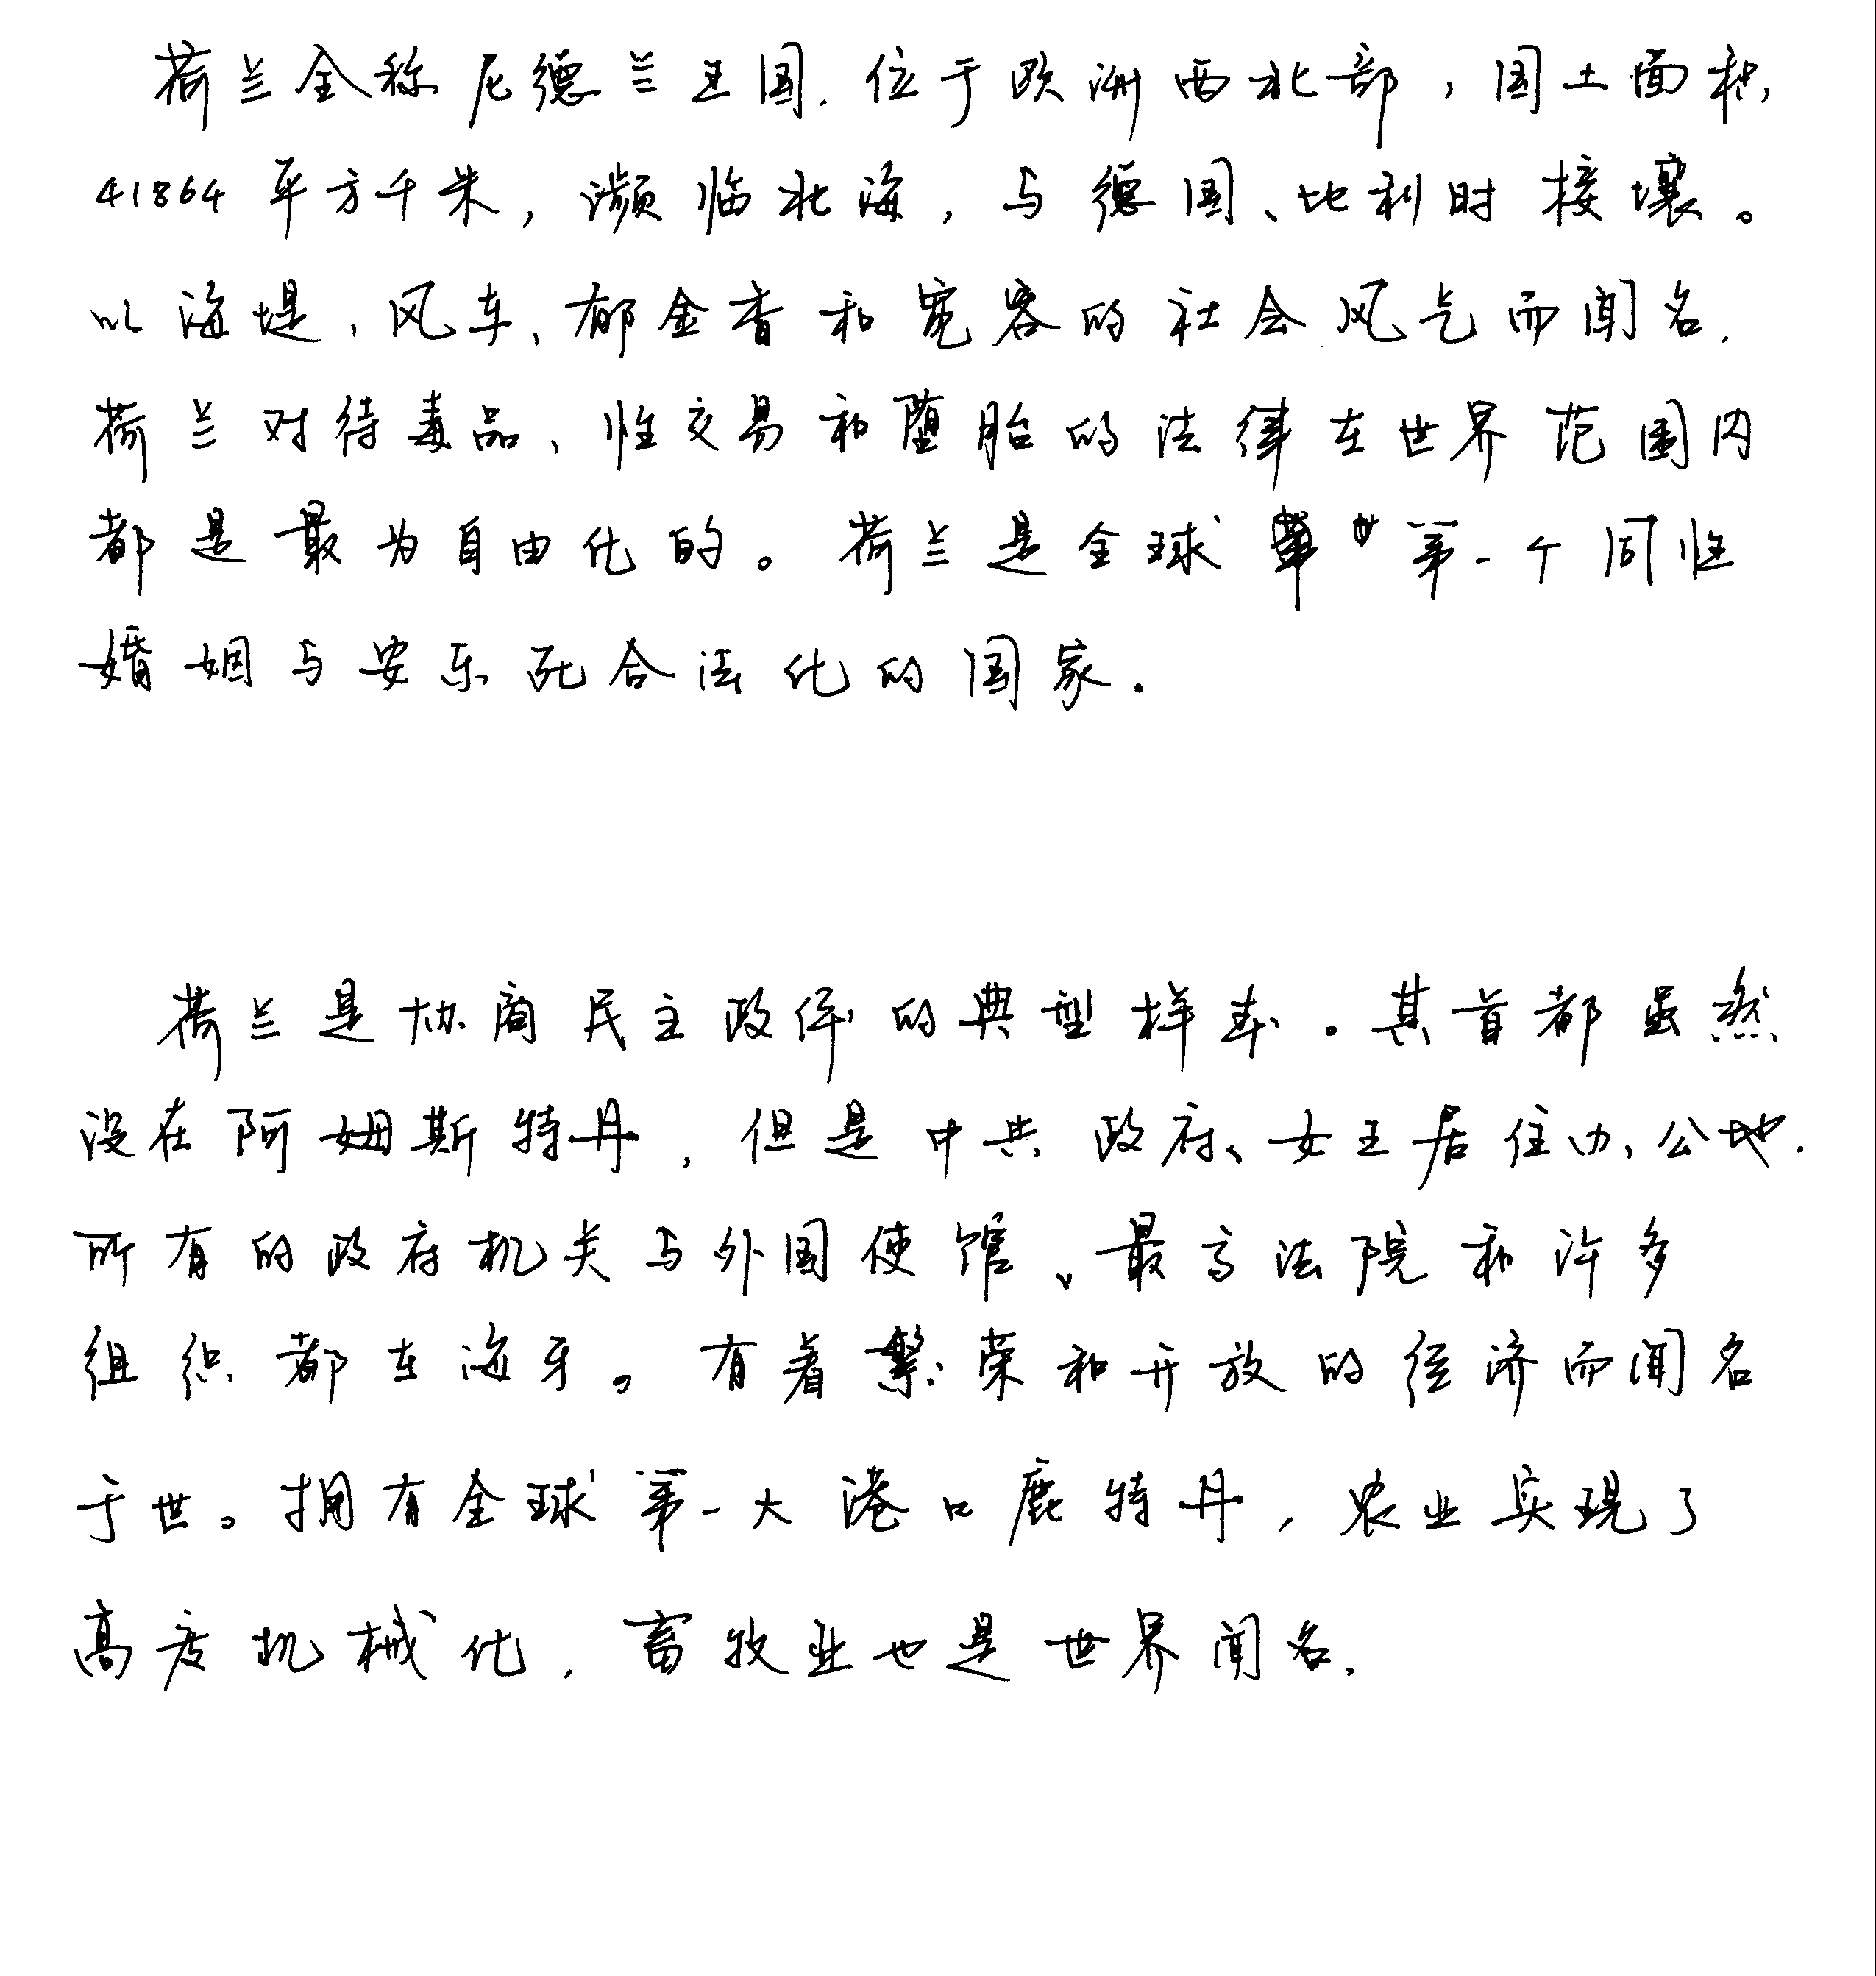 荷兰全称尼德兰王国.位于欧洲西北部,国土面积
41864平方千米,濒临北海,与德国、比利时接壤。
以海堤、风车、郁金香和宽容的社会风气而闻名.
荷兰对待毒品、性交易和堕胎的法律在世界范围内
都是最为自由化的。荷兰是全球第一个同性
婚姻与安乐死合法化的国家.
荷兰是协商民主政体的典型样本。其首都虽然
设在阿姆斯特丹,但是中共政府、女王居住办公地.
所有的政府机关与外国使馆、最高法院和许多
组织都在海牙。有着繁荣和开放的经济而闻名
于世。拥有全球第一大港口鹿特丹,农业实现了
高度机械化,畜牧业也是世界闻名.